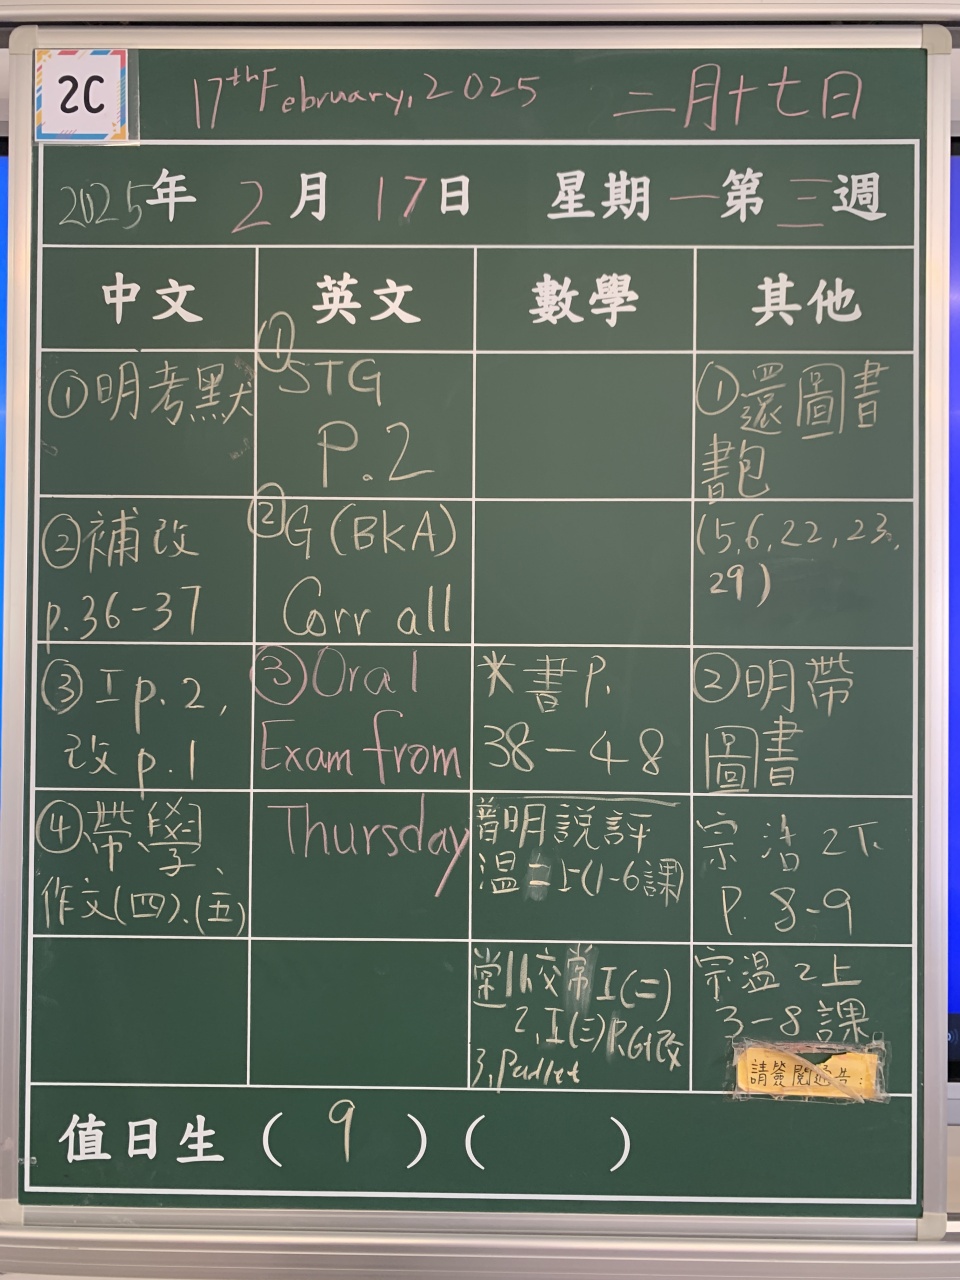 2C
17th February, 2025 二月十七日
2025年 2月 17日 星期一第三週
中文 英文 數學 其他
①明考默
②補改
p.36-37
③工p.2,
改p.1
④帶學、
作文(四)、(五)
①STG
P.2
②G(BKA)
Corr all
③Oral
Exam from
Thursday
*書P.
38-48
普明說評
溫二上(1-6課)
常1,收常工(二)
2,工(三)P.6+改
3,Padlet
①還圖書
書包
(5,6,22,23,
29)
②明帶
圖書
宗浩2下
P.8-9
宗溫2上
3-8課
請簽閱通告:
值日生(9)( )